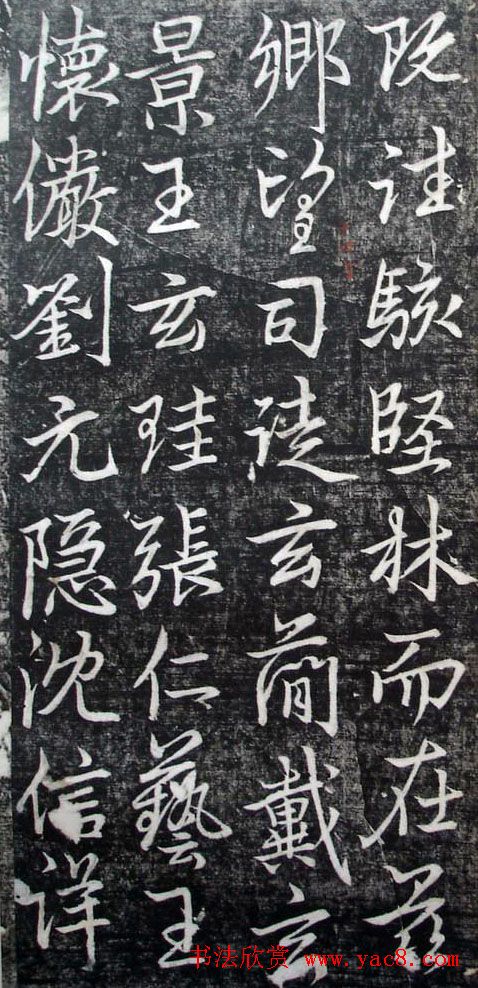 既往駭堅林而在茲
鄉望司徒玄簡戴玄
景王玄珪張仁藝王
懷儼劉元隐沈信詳
书法欣赏 www.yac8.com